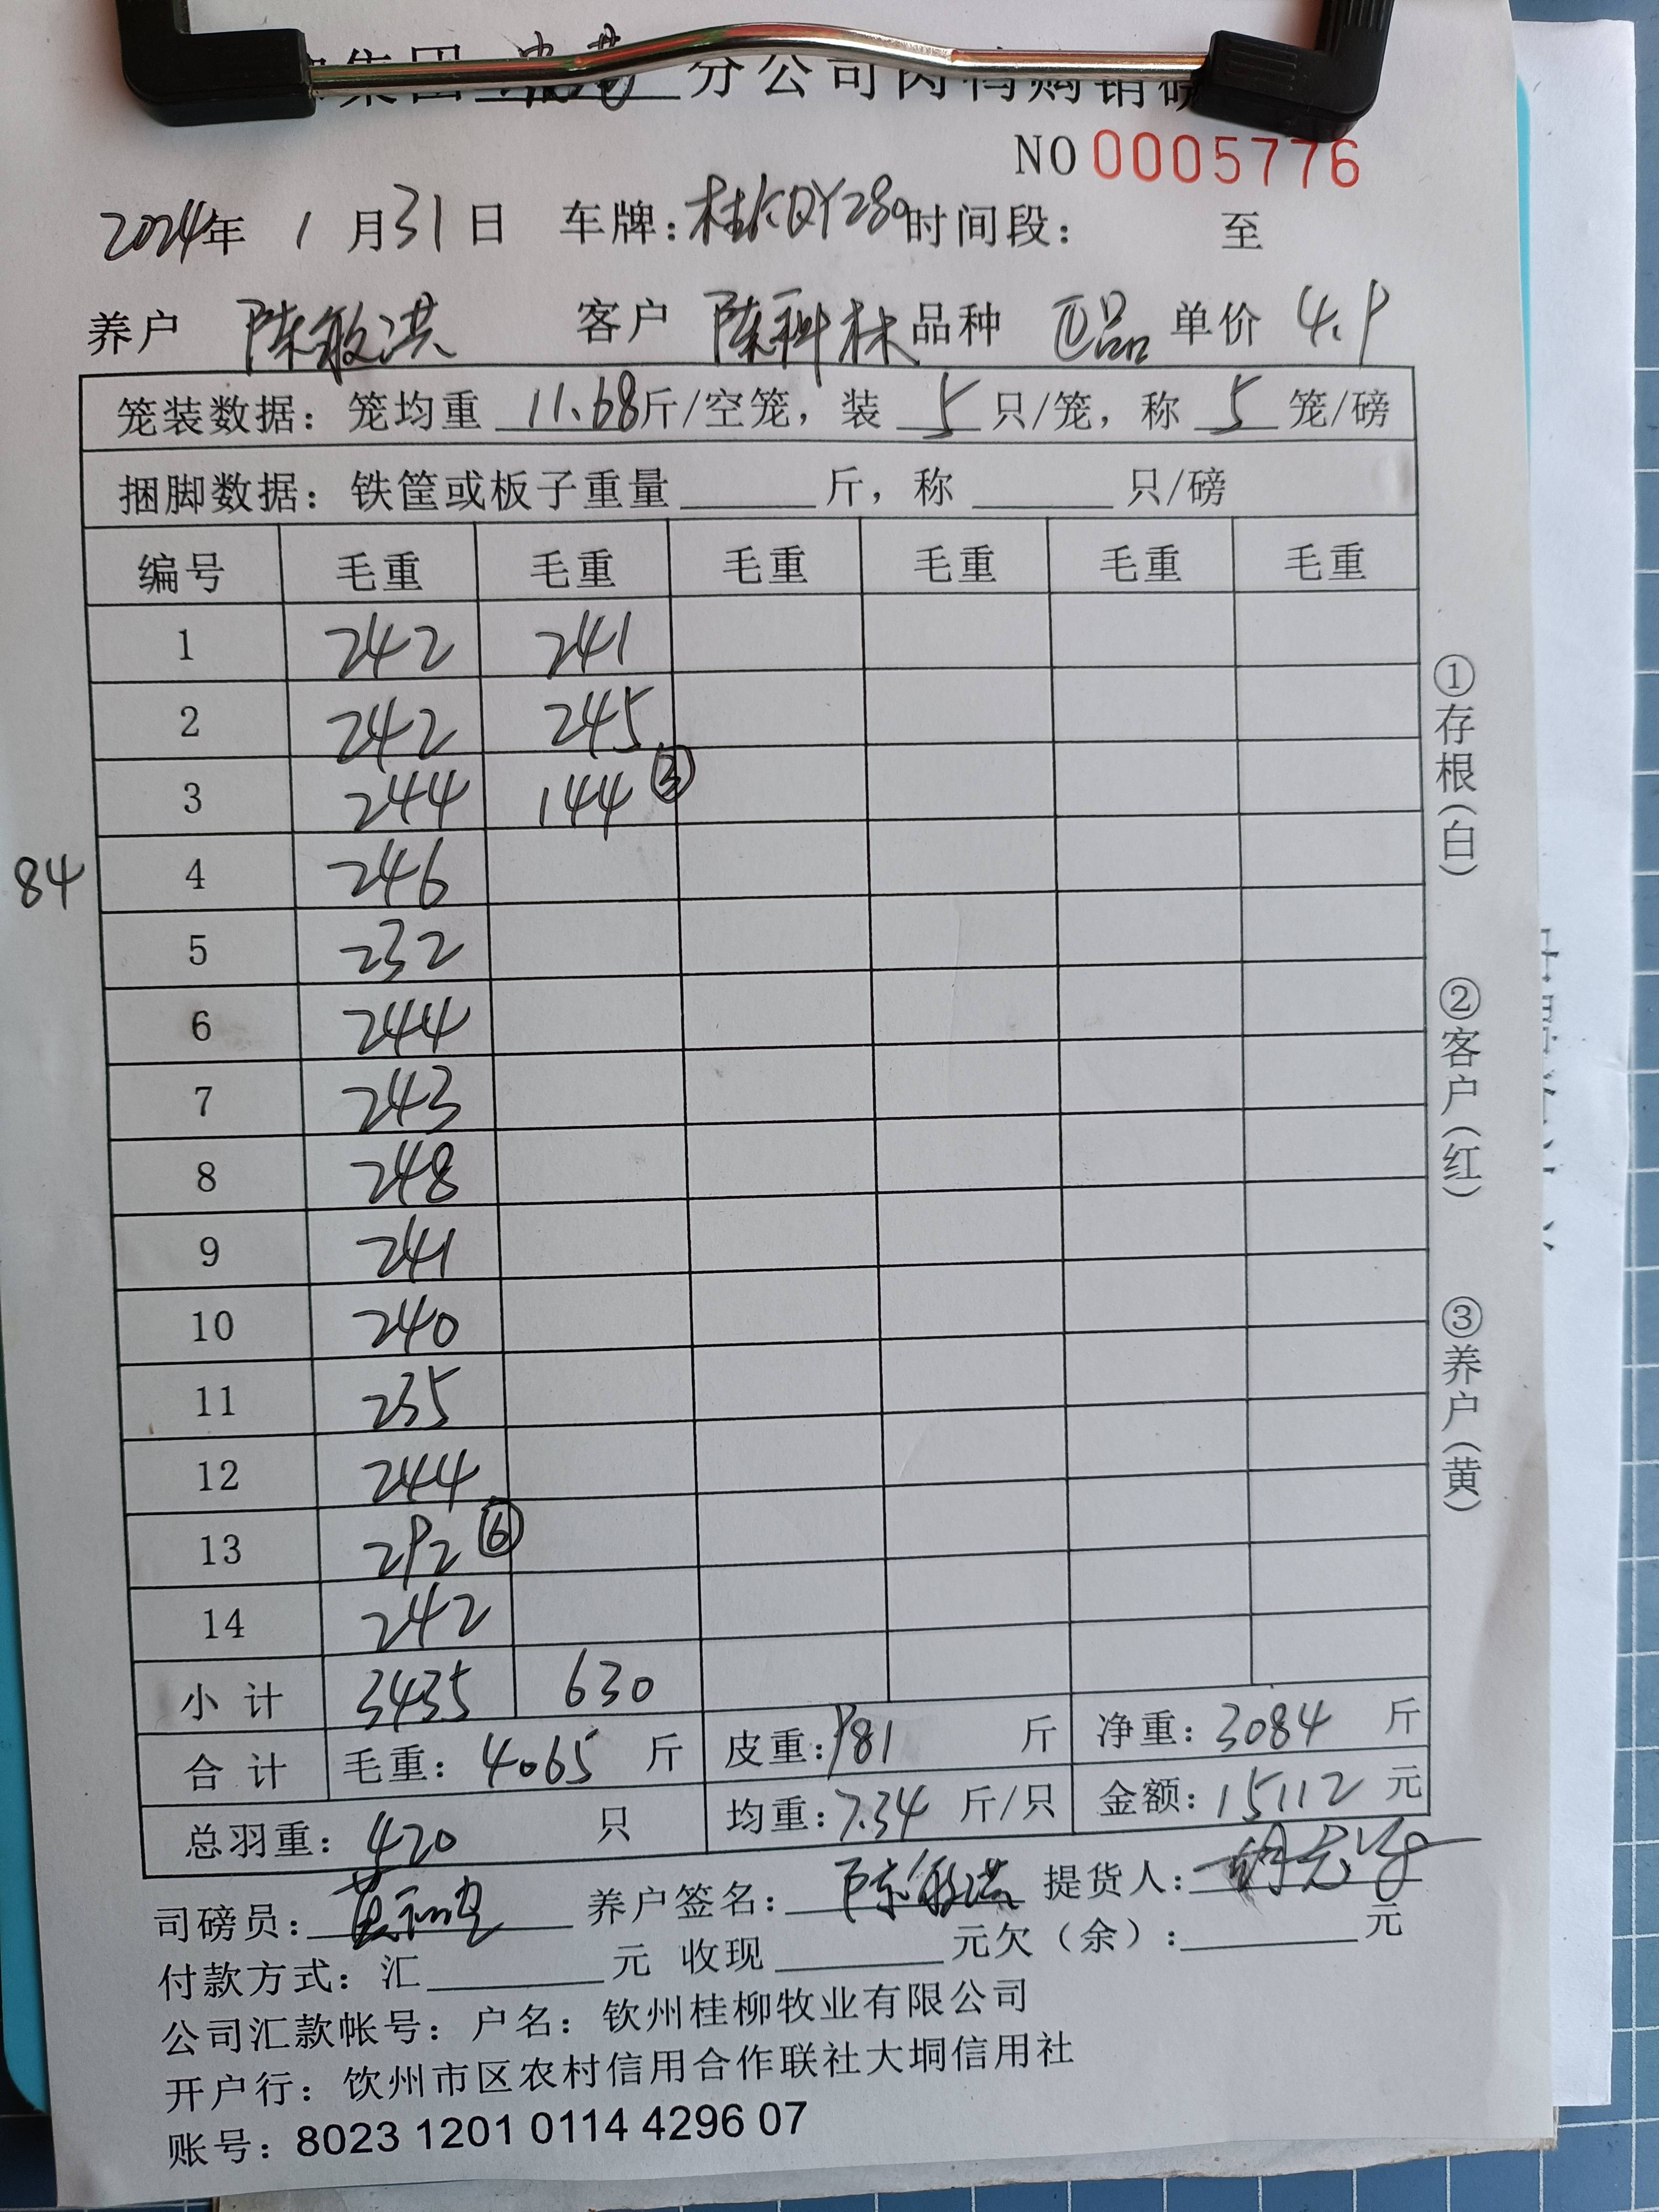 集团 分公司肉鸭购销磅
NO 0005776
2024年 1 月 31 日 车牌: 时间段: 至
养户 陈敏洪 客户 陈科林 品种 正品 单价 4.9
笼装数据: 笼均重 11.68 斤/空笼, 装 5 只/笼, 称 5 笼/磅
捆脚数据: 铁筐或板子重量 斤, 称 只/磅
编号 毛重 毛重 毛重 毛重 毛重 毛重
1 242 241
2 242 245
3 244 144 ③
84
4 246
5 232
6 244
7 243
8 248
9 241
10 240
11 235
12 244
13 292 ⑥
14 242
小 计 3435 630
合 计 毛重: 4065 斤 皮重: 981 斤 净重: 3084 斤
总羽重: 420 只 均重: 7.34 斤/只 金额: 15112 元
司磅员: 养户签名: 陈敏洪 提货人:
付款方式: 汇 元 收现 元欠(余): 元
公司汇款帐号: 户名: 钦州桂柳牧业有限公司
开户行: 饮州市区农村信用合作联社大垌信用社
账号: 8023 1201 0114 4296 07
①存根(白)
②客户(红)
③养户(黄)